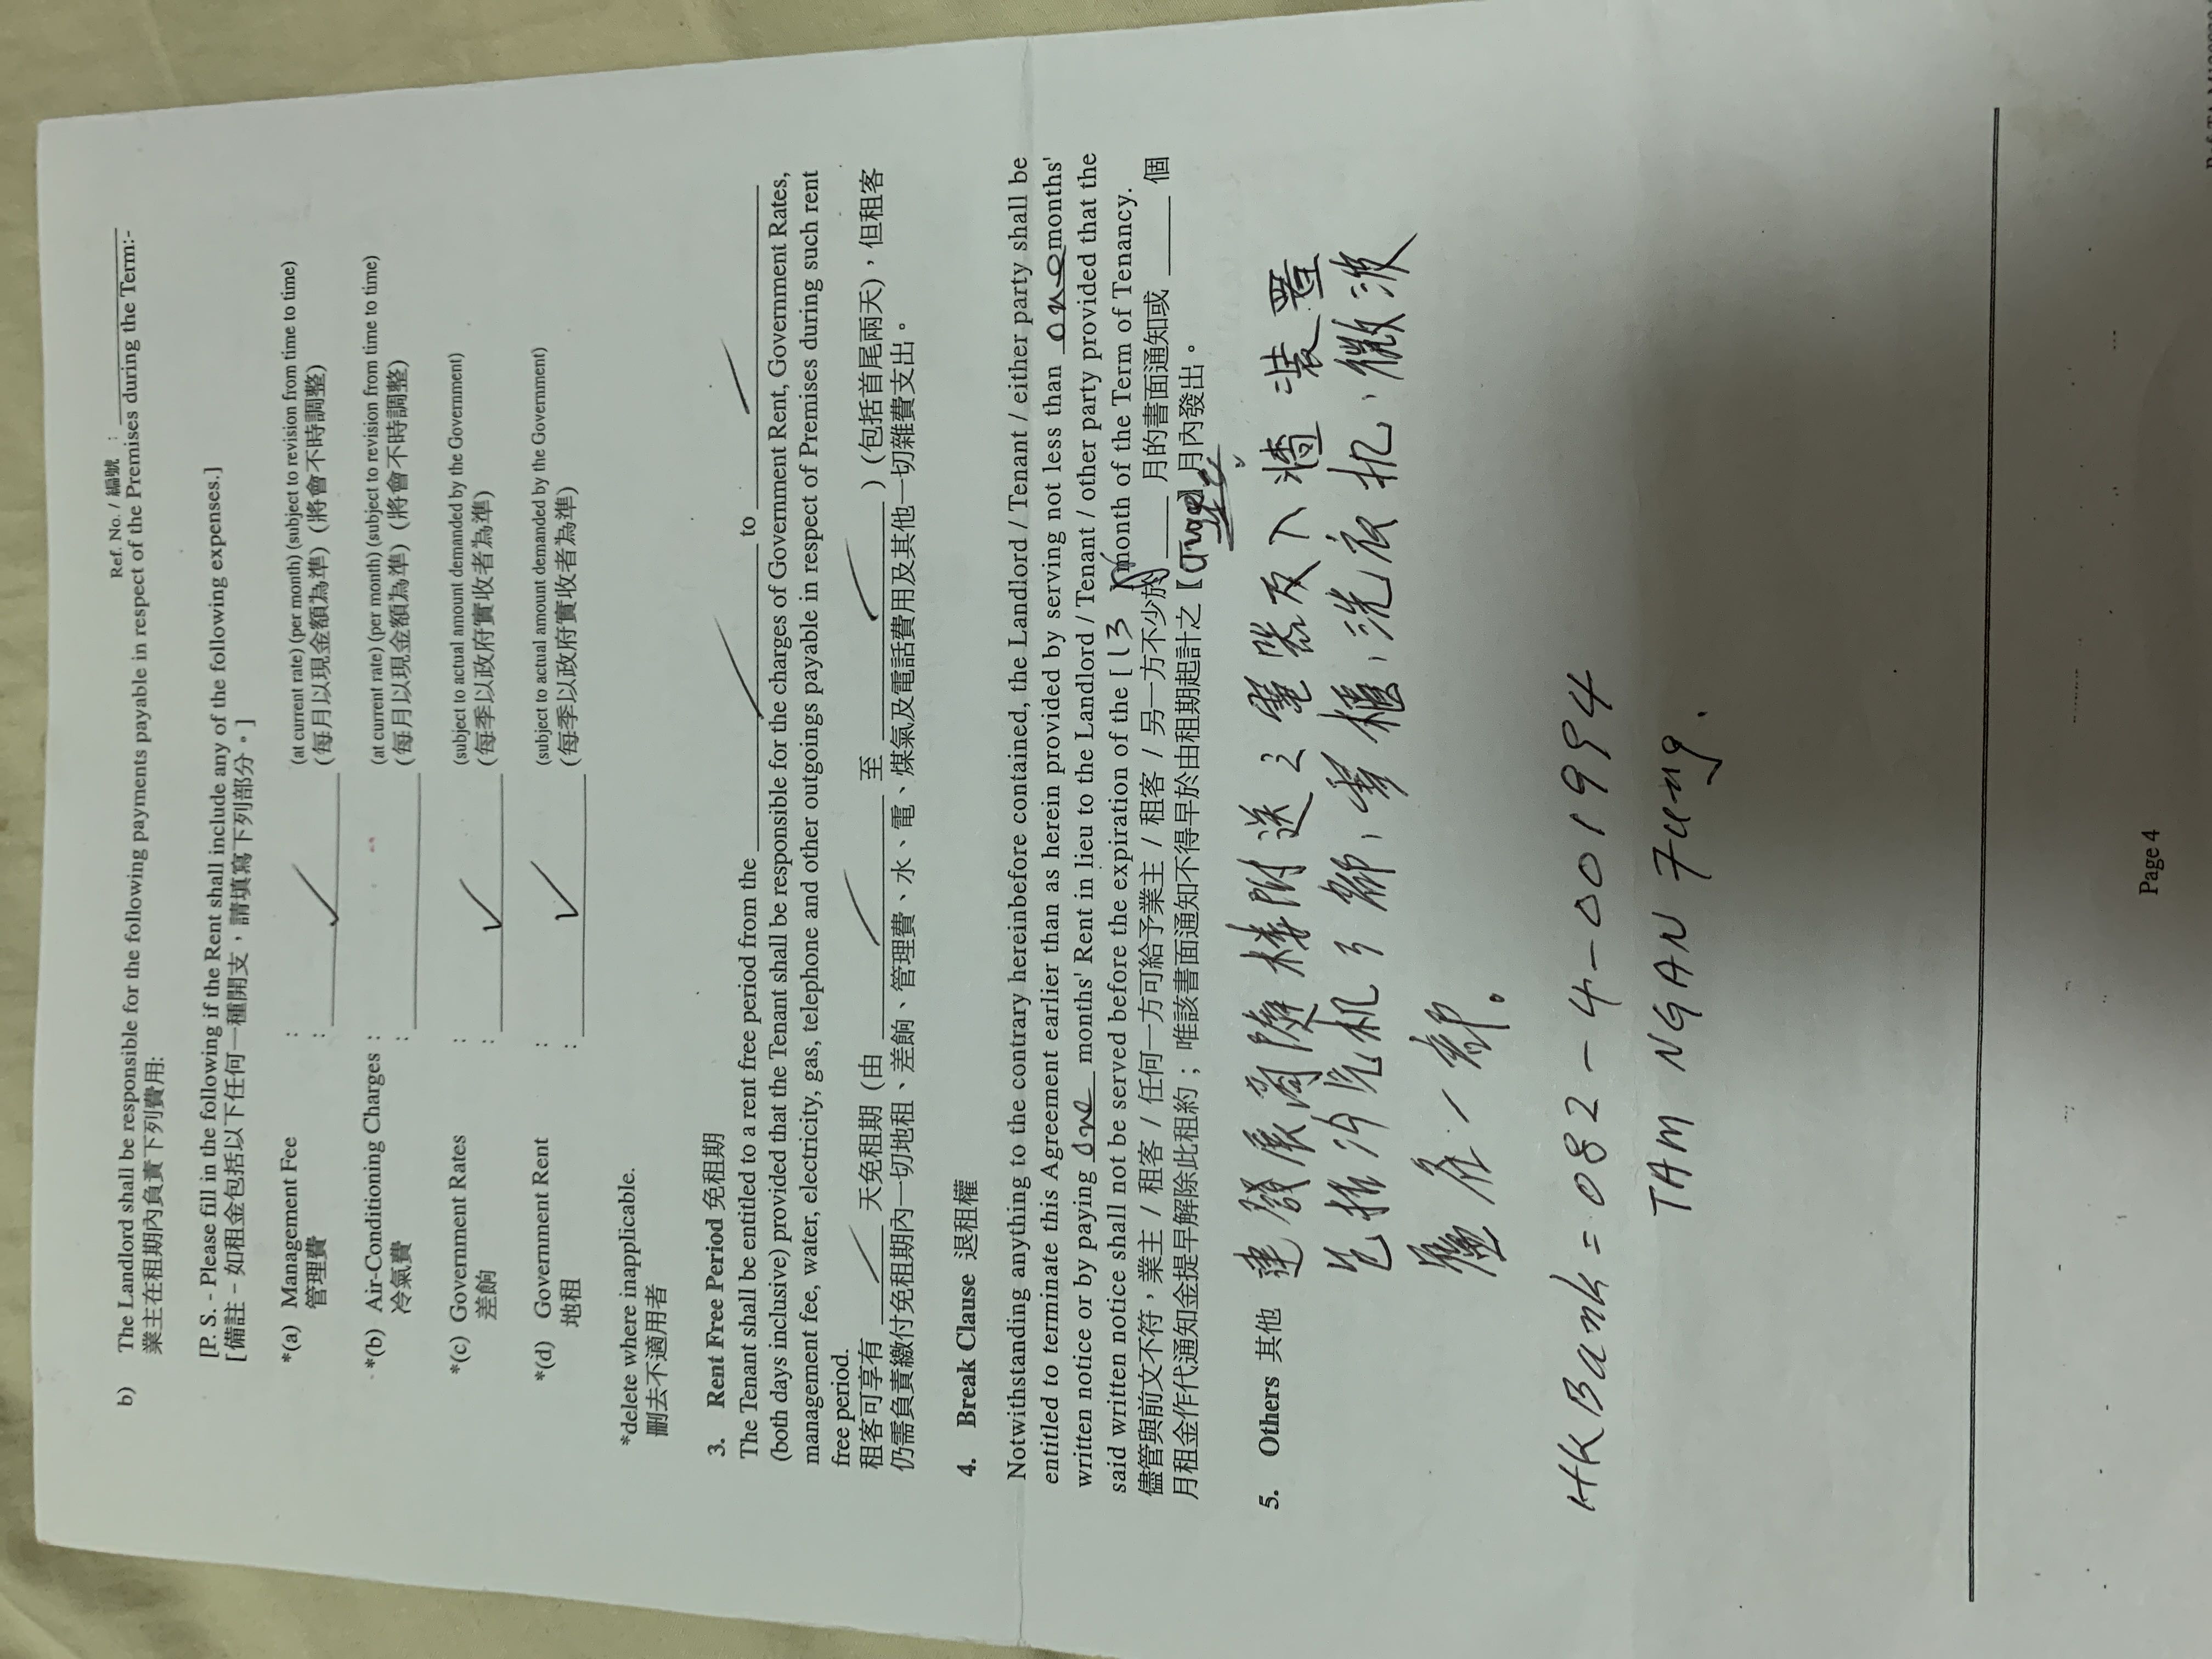 Ref. No. / 編號 :
b) The Landlord shall be responsible for the following payments payable in respect of the Premises during the Term:-
業主在租期內負責下列費用:
[P. S. - Please fill in the following if the Rent shall include any of the following expenses.]
[備註 – 如租金包括以下任何一種開支，請填寫下列部分。]
*(a) Management Fee : (at current rate) (per month) (subject to revision from time to time)
管理費 : (每月以現金額為準) (將會不時調整)
*(b) Air-Conditioning Charges : (at current rate) (per month) (subject to revision from time to time)
冷氣費 : (每月以現金額為準) (將會不時調整)
*(c) Government Rates : (subject to actual amount demanded by the Government)
差餉 : (每季以政府實收者為準)
*(d) Government Rent : (subject to actual amount demanded by the Government)
地租 : (每季以政府實收者為準)
*delete where inapplicable.
刪去不適用者
3. Rent Free Period 免租期
The Tenant shall be entitled to a rent free period from the to
(both days inclusive) provided that the Tenant shall be responsible for the charges of Government Rent, Government Rates,
management fee, water, electricity, gas, telephone and other outgoings payable in respect of Premises during such rent
free period.
租客可享有 天免租期 (由 至 ) (包括首尾兩天)，但租客
仍需負責繳付免租期內一切地租、差餉、管理費、水、電、煤氣及電話費用及其他一切雜費支出。
4. Break Clause 退租權
Notwithstanding anything to the contrary hereinbefore contained, the Landlord / Tenant / either party shall be
entitled to terminate this Agreement earlier than as herein provided by serving not less than one months'
written notice or by paying one months' Rent in lieu to the Landlord / Tenant / other party provided that the
said written notice shall not be served before the expiration of the [ 13 ] month of the Term of Tenancy.
儘管與前文不符，業主 / 租客 / 任何一方可給予業主 / 租客 / 另一方不少於 月的書面通知或 個
月租金作代通知金提早解除此租約；唯該書面通知不得早於由租期起計之【 】月內發出。
5. Others 其他 建發展商隨樓附送之電器及入牆裝置
包括冷氣机3部,雪櫃,洗衣机,微波
爐各一部。
HKBank = 082 - 4 - 001994
TAM NGAN Fung.
Page 4